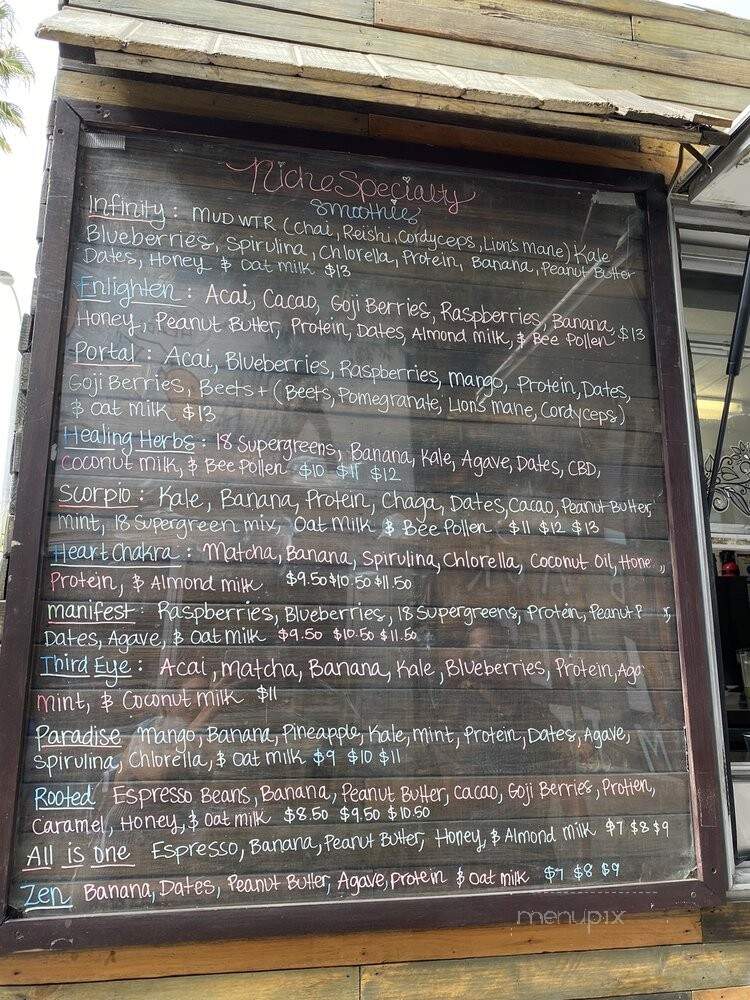 Niche Specialty
Smoothies
Infinity : MUD WTR (Chai, Reishi, Cordyceps, Lion's Mane) Kale
Blueberries, Spirulina, Chlorella, Protein, Banana, Peanut Butter
Dates, Honey & Oat milk $13
Enlighten : Acai, Cacao, Goji Berries, Raspberries, Banana,
Honey, Peanut Butter, Protein, Dates, Almond milk, & Bee Pollen $13
Portal : Acai, Blueberries, Raspberries, mango, Protein, Dates,
Goji Berries, Beets + (Beets, Pomegranate, Lion's mane, Cordyceps)
& Oat milk $13
Healing Herbs : 18 Supergreens, Banana, Kale, Agave, Dates, CBD,
Coconut milk, & Bee Pollen $10 $11 $12
Scorpio : Kale, Banana, Protein, Chaga, Dates, Cacao, Peanut Butter,
mint, 18 Supergreen mix, Oat Milk & Bee Pollen $11 $12 $13
Heart Chakra : Matcha, Banana, Spirulina, Chlorella, Coconut Oil,
Protein, & Almond milk $9.50 $10.50 $11.50
manifest : Raspberries, Blueberries, 18 Supergreens, Protein, Peanut
Dates, Agave, & Oat milk $9.50 $10.50 $11.50
Third Eye : Acai, matcha, Banana, Kale, Blueberries, Protein,
mint, & Coconut milk $11
Paradise Mango, Banana, Pineapple, Kale, mint, Protein, Dates, Agave,
Spirulina, Chlorella, & Oat milk $9 $10 $11
Rooted Espresso Beans, Banana, Peanut Butter, Cacao, Goji Berries, Protien,
Caramel, Honey, & Oat milk $8.50 $9.50 $10.50
All is one Espresso, Banana, Peanut Butter, Honey, & Almond milk $7 $8 $9
Zen Banana, Dates, Peanut Butter, Agave, protein & Oat milk $7 $8 $9
menupix